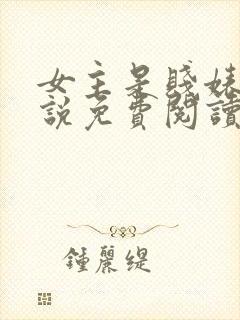 女主是賤婊
說免費閱讀
鍾麗緹